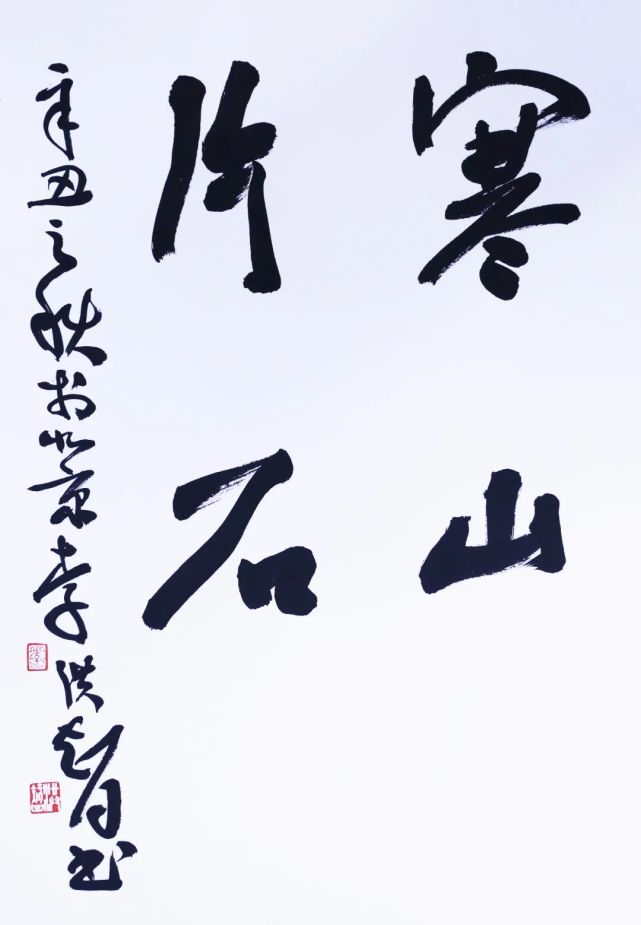 寒山
片石
辛丑之秋於北京李洪智书